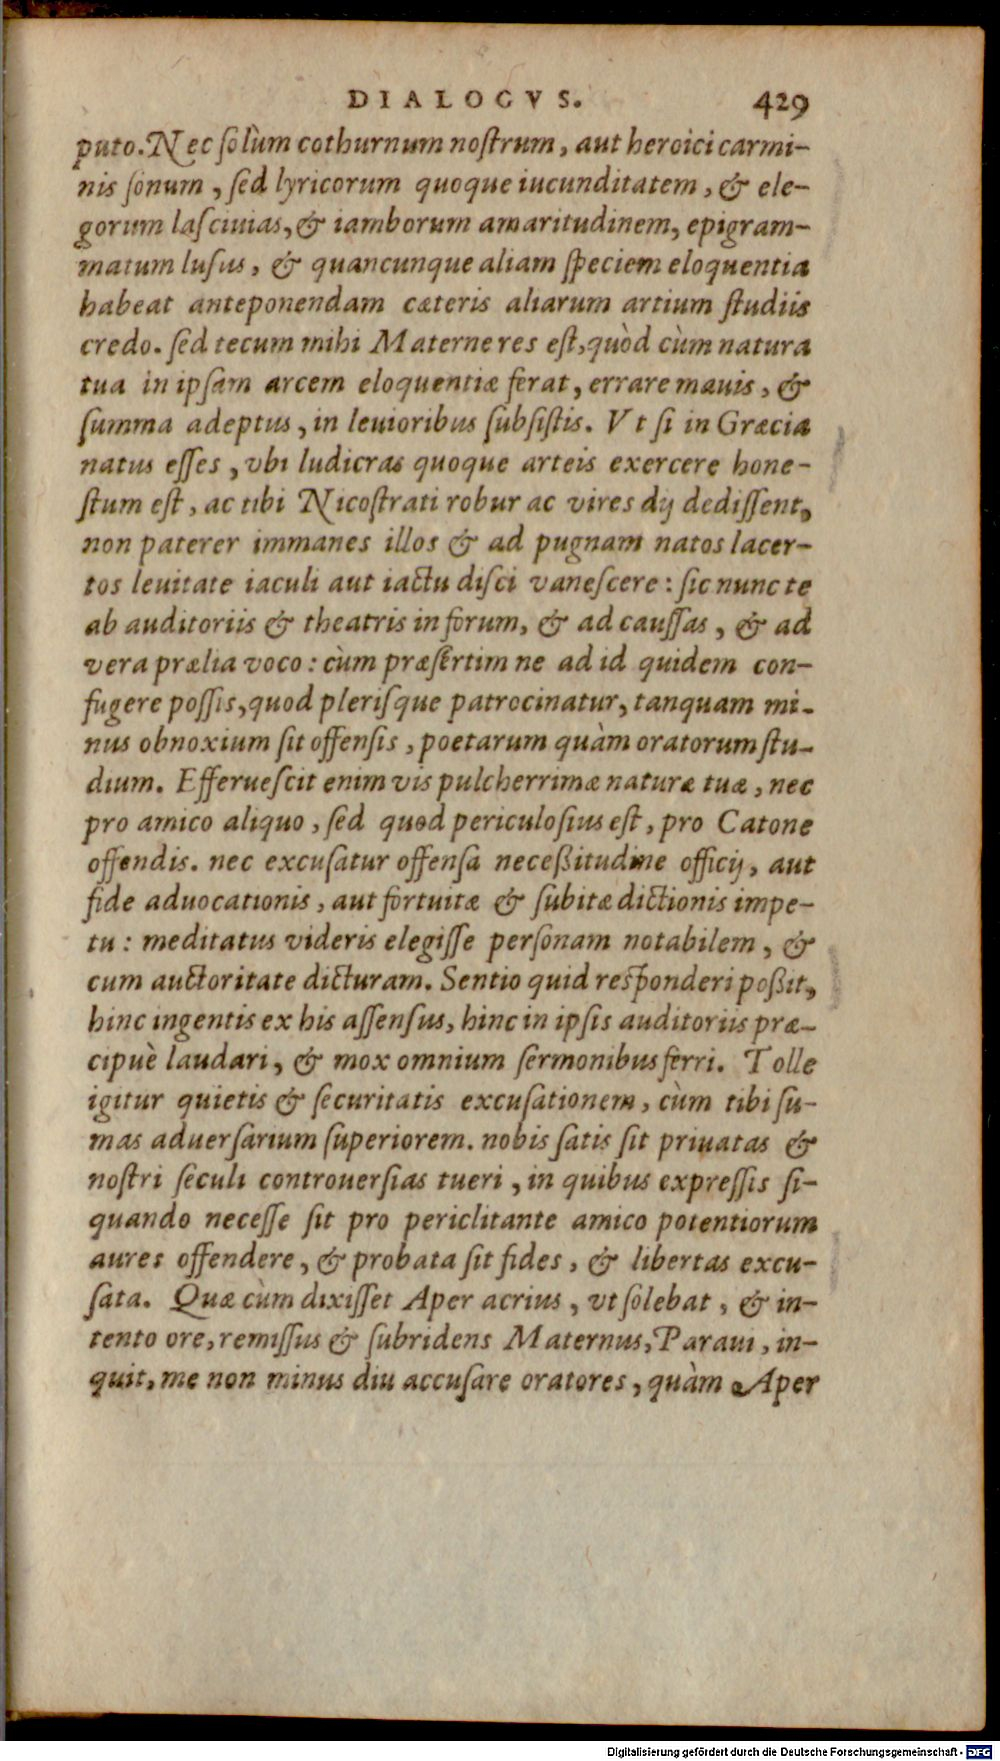 DIALOGVS. 429
puto. Nec ſolùm cothurnum noſtrum, aut heroici carmi-
nis ſonum, ſed lyricorum quoque iucunditatem, & ele-
gorum laſciuias, & iamborum amaritudinem, epigram-
matum luſus, & quancunque aliam ſpeciem eloquentia
habeat anteponendam cæteris aliarum artium ſtudiis
credo. ſed tecum mihi Materne res eſt, quòd cùm natura
tua in ipſam arcem eloquentiæ ferat, errare mauis, &
ſumma adeptus, in leuioribus ſubſiſtis. Vt ſi in Græcia
natus eſſes, vbi ludicras quoque arteis exercere hone-
ſtum eſt, ac tibi Nicoſtrati robur ac vires dij dediſſent,
non paterer immanes illos & ad pugnam natos lacer-
tos leuitate iaculi aut iactu diſci vaneſcere: ſic nunc te
ab auditoriis & theatris in forum, & ad cauſſas, & ad
vera prælia voco: cùm præſertim ne ad id quidem con-
fugere poſſis, quod pleriſque patrocinatur, tanquam mi-
nus obnoxium ſit offenſis, poetarum quàm oratorum ſtu-
dium. Efferueſcit enim vis pulcherrimæ naturæ tuæ, nec
pro amico aliquo, ſed quod periculoſius eſt, pro Catone
offendis. nec excuſatur offenſa neceßitudine officij, aut
fide aduocationis, aut fortuitæ & ſubitæ dictionis impe-
tu: meditatus videris elegiſſe perſonam notabilem, &
cum auctoritate dicturam. Sentio quid reſponderi poßit,
hinc ingentis ex his aſſenſus, hinc in ipſis auditoriis præ-
cipuè laudari, & mox omnium ſermonibus ferri. Tolle
igitur quietis & ſecuritatis excuſationem, cùm tibi ſu-
mas aduerſarium ſuperiorem. nobis ſatis ſit priuatas &
noſtri ſeculi controuerſias tueri, in quibus expreſſis ſi-
quando neceſſe ſit pro periclitante amico potentiorum
aures offendere, & probata ſit fides, & libertas excu-
ſata. Quæ cùm dixiſſet Aper acrius, vt ſolebat, & in-
tento ore, remiſſus & ſubridens Maternus, Paraui, in-
quit, me non minus diu accuſare oratores, quàm Aper
Digitalisierung gefördert durch die Deutsche Forschungsgemeinschaft - DFG